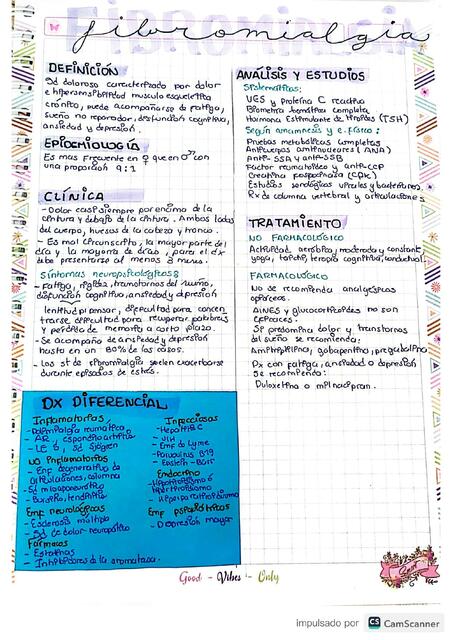 fibromialgia
DEFINICIÓN
Sd doloroso caracterizado por dolor
e hipersensibilidad musculo esquelética
crónico, puede acompañarse de fatiga,
sueño no reparador, disfunción cognitiva,
ansiedad y depresión.
EPIDEMIOLOGÍA
Es mas frecuente en ♀ que en ♂ con
una proporción 9:1
CLÍNICA
- Dolor casi siempre por encima de la
cintura y debajo de la cintura, Ambos lados
del cuerpo, huesos de la cabeza y tronco.
- Es mal circunscrito, la mayor parte del
día y la mayoría de días, para el dx
debe presentarse al menos 3 meses.
Síntomas neuropsicológicos:
- fatiga, rigidez, transtornos del sueño,
disfunción cognitivo, ansiedad y depresión
lentitud p/ pensar, dificultad para concen
trarse, dificultad para recuperar palabras
y pérdida de memoria a corto plazo.
- Se acompaña de ansiedad y depresión
hasta en un 80% de los casos.
- Los st de fibromialgia suelen exacerbarse
durante episodios de estrés.
DX DIFERENCIAL
Inflamatorias
- Polimialgia reumática
- AR, espondiloartritis
- LES, Sd Sjögren
NO inflamatorios
- Enf degenerativa de
articulaciones, columna
- Sd miofascial
- Bursitis, tendinitis
Enf neurológicas
- Esclerosis múltiple
- Sd de dolor neuropático
Fármacos
- Estatinas
- Inhibidores de la aromatasa.
Infecciosas
- Hepatitis C
- VIH
- Enf de Lyme
- Parvovirus B19
- Epstein-Barr
Endocrino
- Hipotiroidismo o
hipertiroidismo
- Hiperparatiroidismo
Enf psiquiátricas
- Depresión mayor
ANÁLISIS Y ESTUDIOS
Sistemáticas:
VES y proteína C reactiva
Biometría hemática completa
Hormona Estimulante de tiroides (TSH)
Según anamnesis y e. físico:
Pruebas metabólicas completas
Anticuerpos antinucleares (ANA)
Anti-SSA y anti-SSB
Factor reumatoideo y anti-CCP
Creatina fosfocinasa (CPK)
Estudios serológicos virales y bacterianos
Rx de columna vertebral y articulaciones
TRATAMIENTO
NO FARMACOLÓGICO
Actividad aeróbica, moderada y constante
yoga, taichi, terapia cognitiva, conductual.
FARMACOLÓGICO
No se recomienda analgésicos
opiáceos.
AINES y glucocorticoides no son
eficaces.
Si predomina dolor y transtornos
del sueño se recomienda:
Amitriptilina, gabapentina, pregabalina
Px con fatiga, ansiedad o depresión
se recomienda:
Duloxetina o milnacipran.
Good - Vibes - Only
impulsado por CS CamScanner